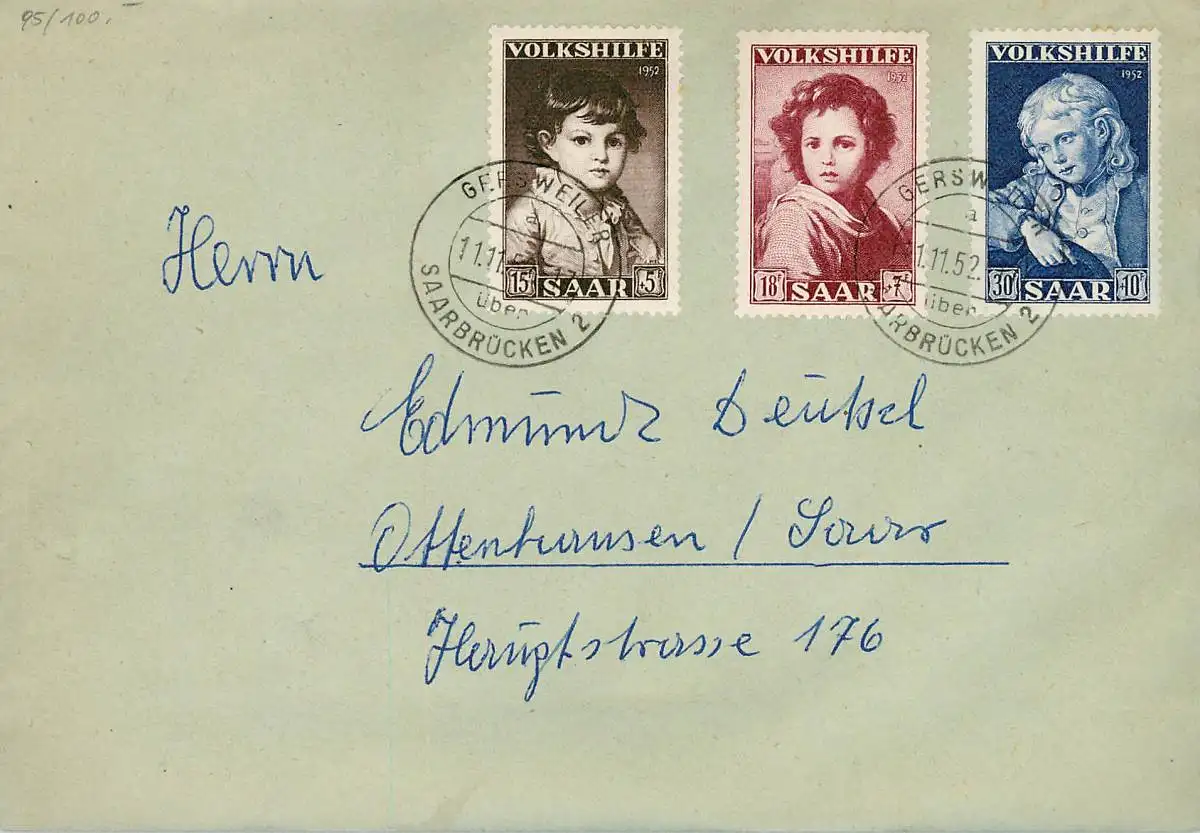 95/100.-
VOLKSHILFE
1952
15 SAAR +5
VOLKSHILFE
1952
18 SAAR +7
VOLKSHILFE
1952
30 SAAR +10
GERSWEILER
a
11.11.
über
SAARBRÜCKEN 2
GERSW
a
1.11.52.
über
ARBRÜCKEN 2
Herrn
Edmund
Ottenhausen / Saar
Hauptstrasse 176